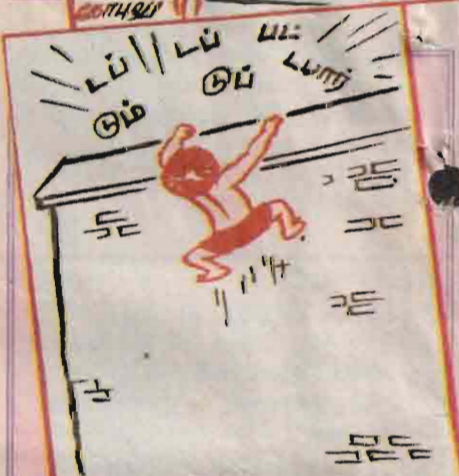 டப் டப் பட்
டும் டுப் டபார்